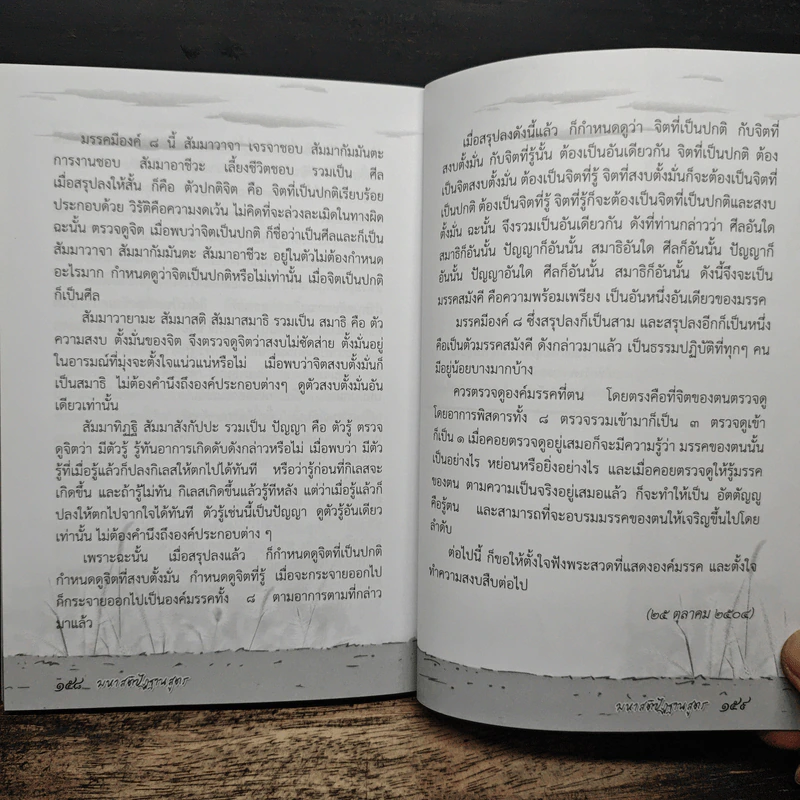 มรรคมีองค์ ๘ นี้ สัมมาวาจา เจรจาชอบ สัมมากัมมันตะ
การงานชอบ สัมมาอาชีวะ เลี้ยงชีวิตชอบ รวมเป็น ศีล
เมื่อสรุปลงให้สั้น ก็คือ ตัวปกติจิต คือ จิตที่เป็นปกติเรียบร้อย
ประกอบด้วย วิรัติคือความงดเว้น ไม่คิดที่จะล่วงละเมิดในทางผิด
ฉะนั้น ตรวจดูจิต เมื่อพบว่าจิตเป็นปกติ ก็ชื่อว่าเป็นศีลและก็เป็น
สัมมาวาจา สัมมากัมมันตะ สัมมาอาชีวะ อยู่ในตัวไม่ต้องกำหนด
อะไรมาก กำหนดดูว่าจิตเป็นปกติหรือไม่เท่านั้น เมื่อจิตเป็นปกติ
ก็เป็นศีล
สัมมาวายามะ สัมมาสติ สัมมาสมาธิ รวมเป็น สมาธิ คือ ตัว
ความสงบ ตั้งมั่นของจิต จึงตรวจดูจิตว่าสงบไม่ซัดส่าย ตั้งมั่นอยู่
ในอารมณ์ที่มุ่งจะตั้งใจแน่วแน่หรือไม่ เมื่อพบว่าจิตสงบตั้งมั่นก็
เป็นสมาธิ ไม่ต้องคำนึงถึงองค์ประกอบต่างๆ ดูตัวสงบตั้งมั่นอัน
เดียวเท่านั้น
สัมมาทิฏฐิ สัมมาสังกัปปะ รวมเป็น ปัญญา คือ ตัวรู้ ตรวจ
ดูจิตว่า มีตัวรู้ รู้ทันอาการเกิดดับดังกล่าวหรือไม่ เมื่อพบว่า มีตัว
รู้ที่เมื่อรู้แล้วก็ปลงกิเลสให้ตกไปได้ทันที หรือว่ารู้ก่อนที่กิเลสจะ
เกิดขึ้น และถ้ารู้ไม่ทัน กิเลสเกิดขึ้นแล้วรู้ทีหลัง แต่ว่าเมื่อรู้แล้วก็
ปลงให้ตกไปจากใจได้ทันที ตัวรู้เช่นนี้เป็นปัญญา ดูตัวรู้อันเดียว
เท่านั้น ไม่ต้องคำนึงถึงองค์ประกอบต่าง ๆ
เพราะฉะนั้น เมื่อสรุปลงแล้ว ก็กำหนดดูจิตที่เป็นปกติ
กำหนดดูจิตที่สงบตั้งมั่น กำหนดดูจิตที่รู้ เมื่อจะกระจายออกไป
ก็กระจายออกไปเป็นองค์มรรคทั้ง ๘ ตามอาการตามที่กล่าว
มาแล้ว
๑๕๘ มหาสติปัฏฐานสูตร
เมื่อสรุปลงดังนี้แล้ว ก็กำหนดดูว่า จิตที่เป็นปกติ กับจิตที่
สงบตั้งมั่น กับจิตที่รู้นั้น ต้องเป็นอันเดียวกัน จิตที่เป็นปกติ ต้อง
เป็นจิตสงบตั้งมั่น ต้องเป็นจิตที่รู้ จิตที่สงบตั้งมั่นก็จะต้องเป็นจิตที่
เป็นปกติ ต้องเป็นจิตที่รู้ จิตที่รู้ก็จะต้องเป็นจิตที่เป็นปกติและสงบ
ตั้งมั่น ฉะนั้น จึงรวมเป็นอันเดียวกัน ดังที่ท่านกล่าวว่า ศีลอันใด
สมาธิก็อันนั้น ปัญญาก็อันนั้น สมาธิอันใด ศีลก็อันนั้น ปัญญาก็
อันนั้น ปัญญาอันใด ศีลก็อันนั้น สมาธิก็อันนั้น ดังนี้จึงจะเป็น
มรรคสมังคี คือความพร้อมเพรียง เป็นอันหนึ่งอันเดียวของมรรค
มรรคมีองค์ ๘ ซึ่งสรุปลงก็เป็นสาม และสรุปลงอีกก็เป็นหนึ่ง
คือเป็นตัวมรรคสมังคี ดังกล่าวมาแล้ว เป็นธรรมปฏิบัติที่ทุกๆ คน
มีอยู่น้อยบางมากบ้าง
ควรตรวจดูองค์มรรคที่ตน โดยตรงคือที่จิตของตนตรวจดู
โดยอาการพิสดารทั้ง ๘ ตรวจรวมเข้ามาก็เป็น ๓ ตรวจดูเข้า
ก็เป็น ๑ เมื่อคอยตรวจดูอยู่เสมอก็จะมีความรู้ว่า มรรคของตนนั้น
เป็นอย่างไร หย่อนหรือยิ่งอย่างไร และเมื่อคอยตรวจดูให้รู้มรรค
ของตน ตามความเป็นจริงอยู่เสมอแล้ว ก็จะทำให้เป็น อัตตัญญู
คือรู้ตน และสามารถที่จะอบรมมรรคของตนให้เจริญขึ้นไปโดย
ลำดับ
ต่อไปนี้ ก็ขอให้ตั้งใจฟังพระสวดที่แสดงองค์มรรค และตั้งใจ
ทำความสงบสืบต่อไป
(๒๕ ตุลาคม ๒๕๐๔)
มหาสติปัฏฐานสูตร ๑๕๙